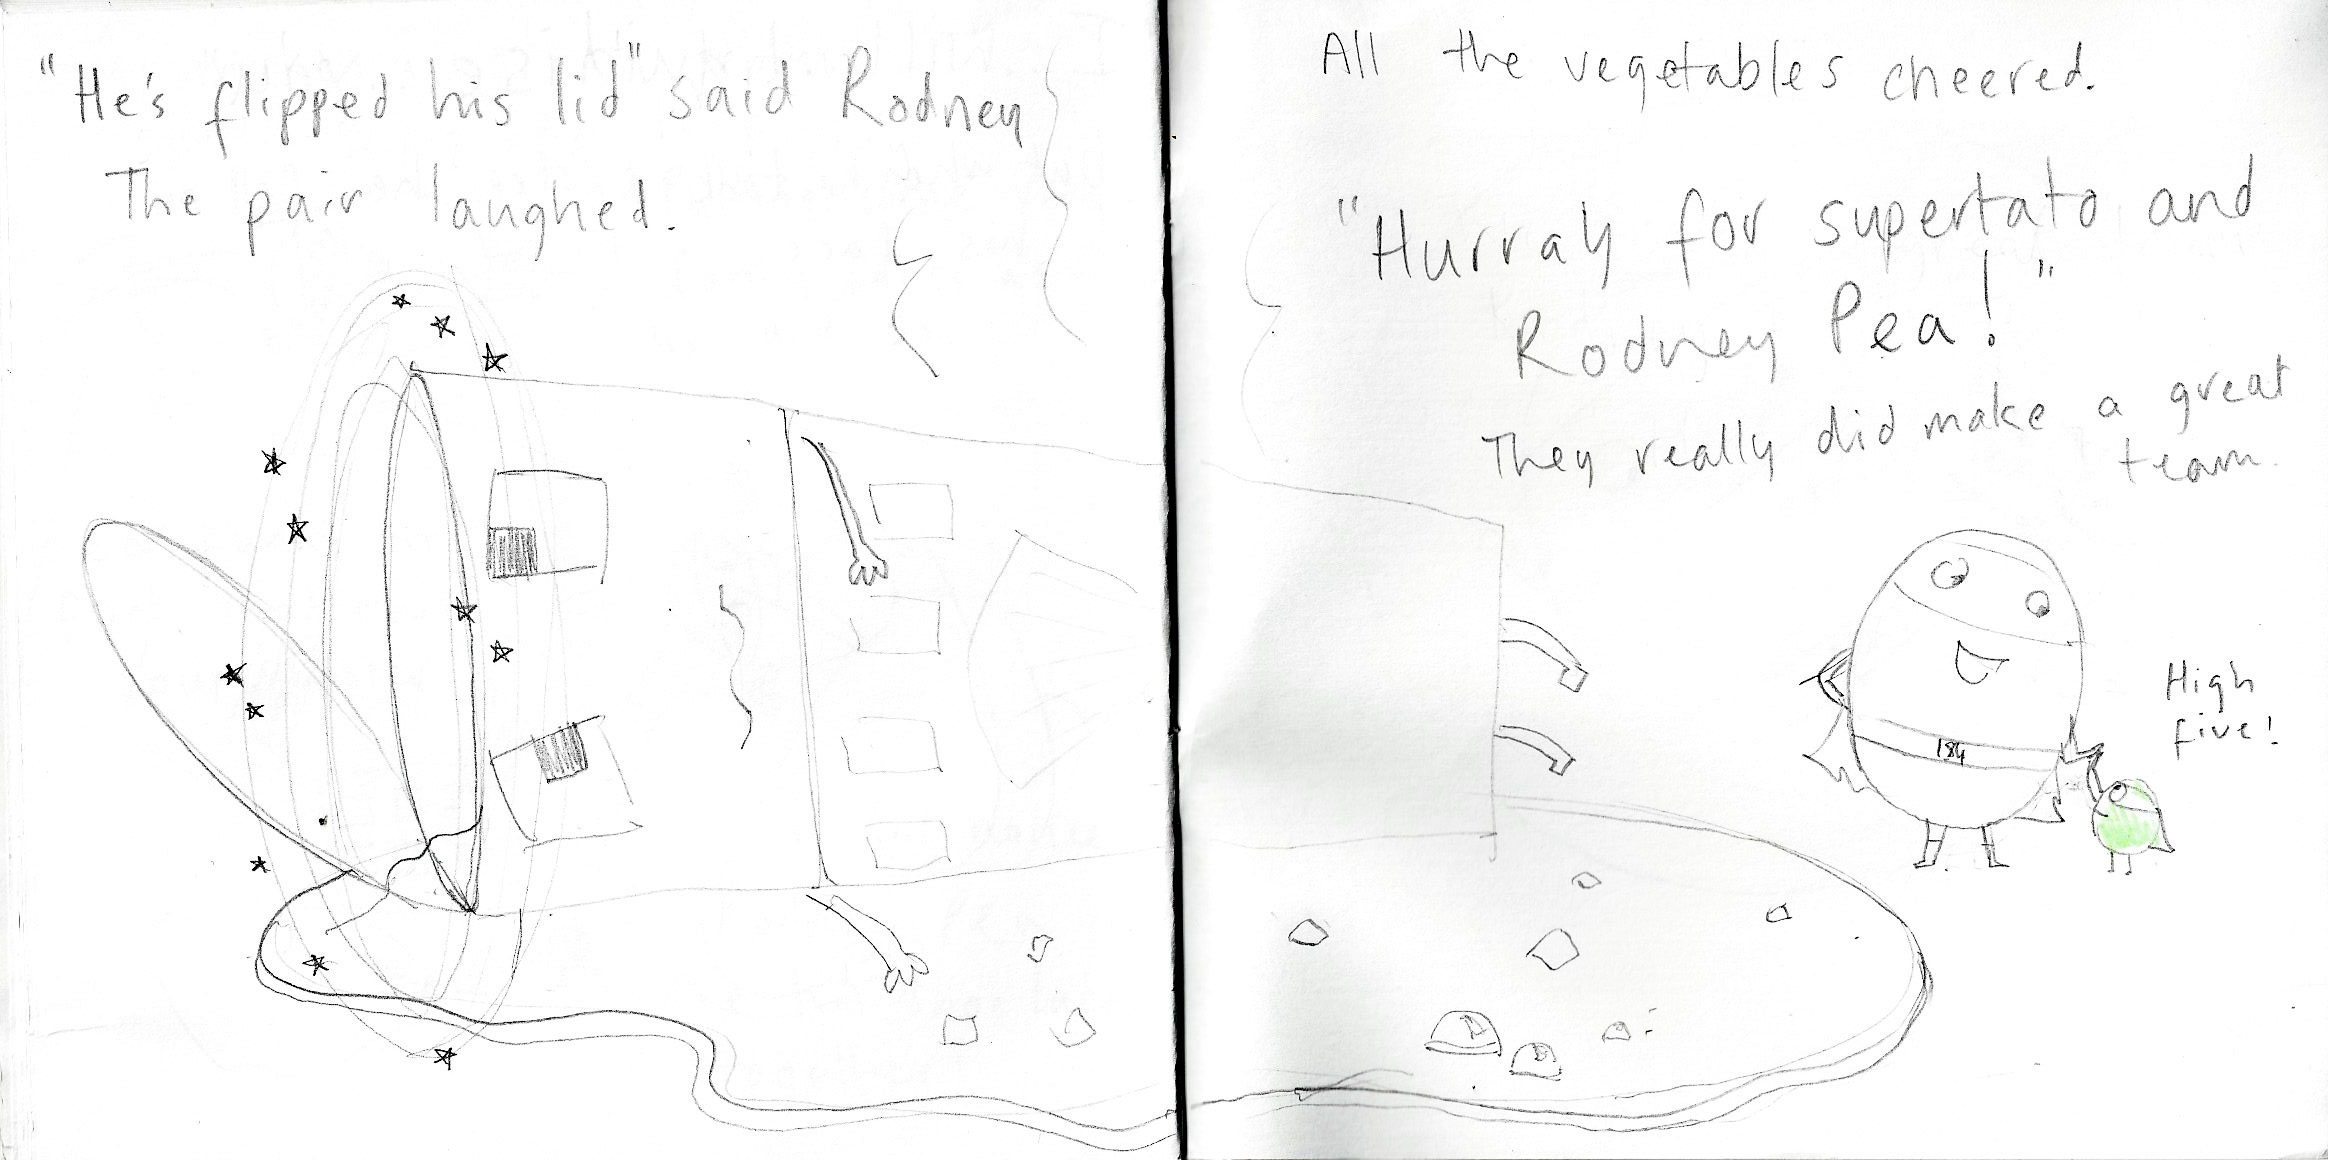 "He's flipped his lid" said Rodney
The pair laughed.
All the vegetables cheered.
"Hurrah for supertato and
Rodney Pea!"
They really did make a great
team.
High
five!